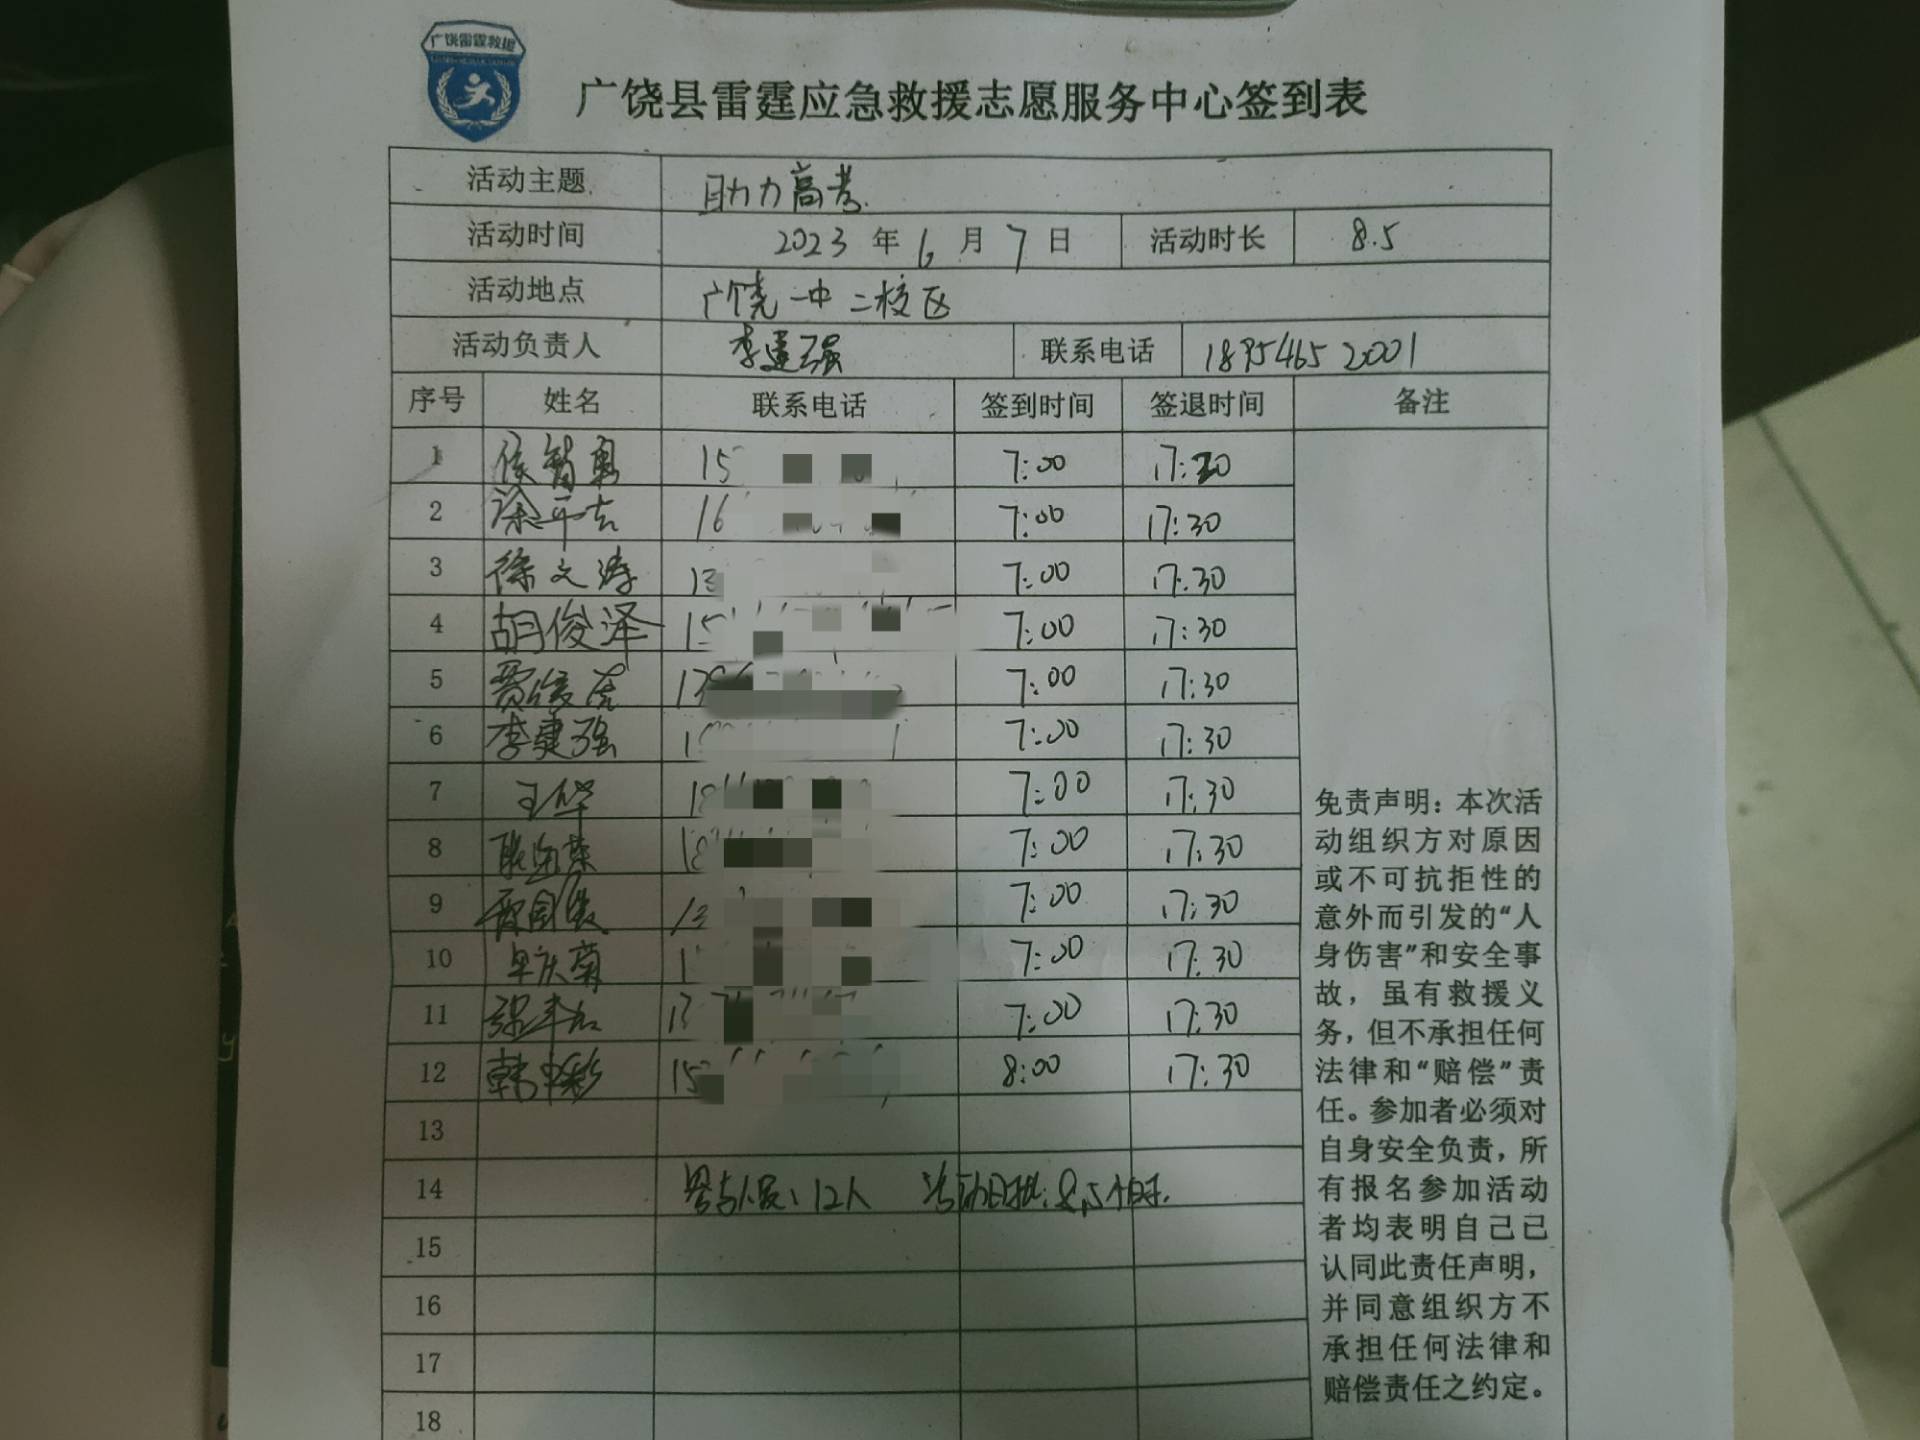 广饶雷霆救援
广饶县雷霆应急救援志愿服务中心签到表
活动主题 助力高考
活动时间 2023 年 6 月 7 日 活动时长 8.5
活动地点 广饶一中二校区
活动负责人 李建强 联系电话 18954652001
序号 姓名 联系电话 签到时间 签退时间 备注
1 侯智勇 15 7:00 17:30
2 16 7:00 17:30
3 徐文涛 13 7:00 17:30
4 胡俊泽 15 7:00 17:30
5 13 7:00 17:30
6 李建强 1 7:00 17:30
7 王华 18 7:00 17:30
8 18 7:00 17:30
9 13 7:00 17:30
10 1 7:00 17:30
11 13 7:00 17:30
12 15 8:00 17:30
13
14 参与人员:12人 活动时长:8.5个时.
15
16
17
18
免责声明：本次活
动组织方对原因
或不可抗拒性的
意外而引发的“人
身伤害”和安全事
故，虽有救援义
务，但不承担任何
法律和“赔偿”责
任。参加者必须对
自身安全负责，所
有报名参加活动
者均表明自己已
认同此责任声明，
并同意组织方不
承担任何法律和
赔偿责任之约定。